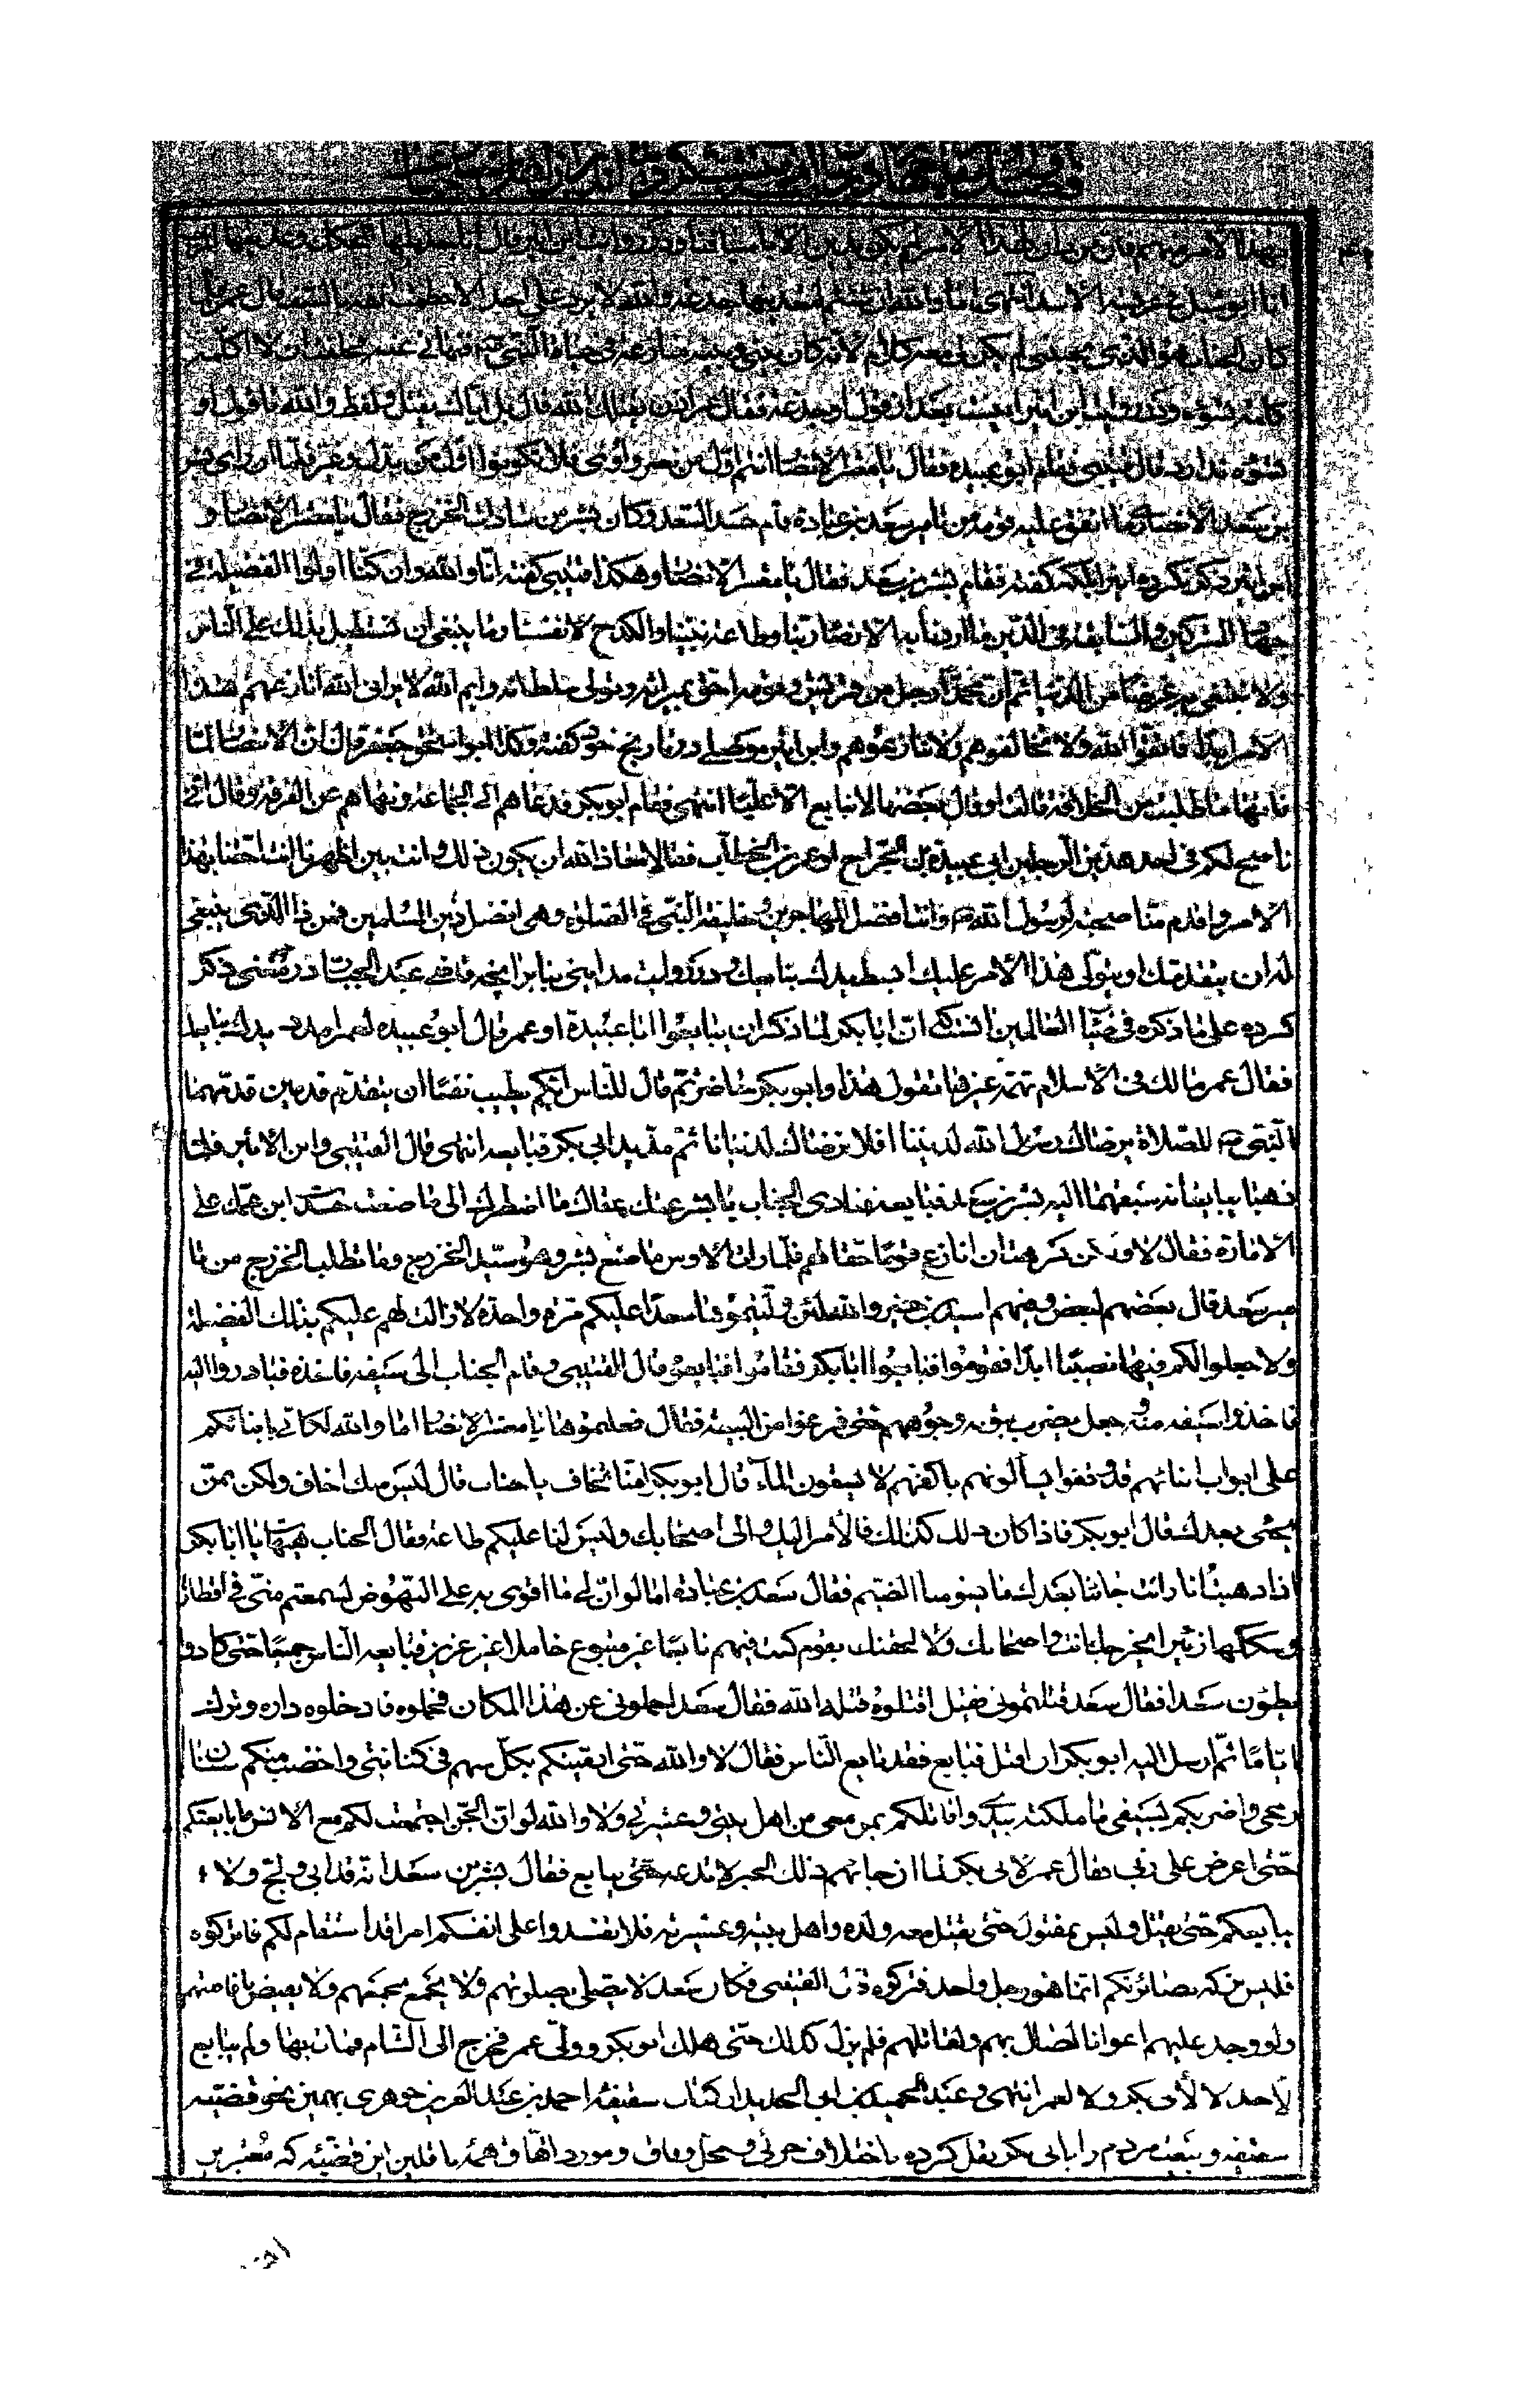 بهذا الامر منهم فانه من دان لهذا الامر لم يكن يدين الا باسيافنا ودر روايت ابن اثير قال انا جذيلها المحكك وعذيقها المرجب
انا ابو شبل في عرينة الاسد انتهى اما والله ان شئتم لنعيدنها جذعة والله لا يرد على احد الا حطمت انفه بالسيف قال عمر فلما
كان الحباب هو الذى يجيبنى لم يكن لى معه كلام لانه كان بينى وبينه منازعة فى حياة النبى ص فنهانى عنه فحلفت ان لا اكلمه
كلمة تسوؤه ودر روايت ابن اثير بعد از قول او جذعة فقال عمر اذن يقتلك الله قال بل اياك يقتل ولفظ والله ما قول او
تسؤه ندارد قال قتيبى فقام ابو عبيده فقال يا معشر الانصار انتم اول من نصر واوى فلا تكونوا اول من بدل وغير فلما راى بشر
بن سعد الانصارى ما اتفق عليه قومه من تامير سعد بن عباده قام حسدا لسعد وكان بشر من سادات الخزرج فقال يا معشر الانصار و
ابن اثير ذكر نكرده اين را بلكه گفته فقام بشير بن سعد فقال يا معشر الانصار وهكذا قتيبى گفته انا والله وان كنا اولوا الفضيلة فى
جهاد المشركين والسابقة فى الدين ما اردنا به الا رضا ربنا وطاعة نبينا والكدح لانفسنا وما ينبغى ان نستطيل بذلك على الناس
ولا نبتغى به عرضا من الدنيا ثم ان محمدا رجل من قريش وقومه احق بميراثه وتولى سلطانه وايم الله لا يرانى الله انازعهم هذا
الامر ابدا فاتقوا الله ولا تخالفوهم ولا تنازعوهم وابن اثير موصلى در تاريخ خود گفته وكذا ابو اسحق جعفر قال ان الانصار لما
فاتها ما طلبت من الخلافة قالت او قال بعضها لا نبايع الا عليا انتهى فقام ابو بكر فدعاهم الى الجماعة ونهاهم عن الفرقة وقال انى
ناصح لكم فى احد هذين الرجلين ابى عبيدة بن الجراح او عمر بن الخطاب فقالا معاذ الله ان يكون ذلك وانت بين اظهرنا انت احقنا بهذا
الامر واقدم منا صحبة لرسول الله ص وانت افضل المهاجرين وخليفة النبى فى الصلوة وهى افضل دين المسلمين فمن ذا الذى ينبغى
له ان يتقدمك او يتولى هذا الامر عليك ابسط يدك نبايعك ودر روايت مداينى بنا بر انچه قاضى عبد الجبار در مغنى ذكر
كرده على ما ذكره فى ضيآء العالمين انست كه ان ابا بكر لما ذكر ان يبايعوا ابا عبيدة او عمر قال ابو عبيده لعمر امدد يدك نبايع
فقال عمر مالك فى الاسلام تهمة غيرها تقول هذا وابو بكر حاضر ثم قال للناس ايكم يطيب نفسا ان يتقدم قدمين قدمهما
النبى ص للصلاة رضاك رسول الله لديننا افلا نرضاك لدنيانا ثم مد يد ابى بكر فبايعه انتهى قال القتيبى وابن الاثير فلما
ذهبا يبايعانه سبقهما اليه بشر بن سعد فبايعه فنادى الحباب يا بشر عقك عقاق ما اضطرك الى ما صنعت حسدت ابن عمك على
الامارة فقال لا ولكن كرهت ان انازع قوما حقا لهم فلما رات الاوس ما صنع بشر وهو سيد الخزرج وما تطلب الخزرج من تا
مير سعد قال بعضهم لبعض وفيهم اسيد بن حضير والله لئن وليتموها سعدا عليكم مرة واحدة لا زالت لهم عليكم بذلك الفضيلة
ولا جعلوا لكم فيها نصيبا ابدا فقوموا فبايعوا ابا بكر فقاموا فبايعوه قال القتيبى وقام الحباب الى سيفه فاخذه فبادروا اليه
فاخذوا سيفه منه وجعل يضرب بثوبه وجوههم حتى فرغوا من البيعة فقال فعلتموها يا معشر الانصار اما والله لكانى بابنائكم
على ابواب ابنائهم قد وقفوا يسألونهم باكفهم لا يسقون المآء قال ابو بكر امنا تخاف يا حباب قال ليس منك اخاف ولكن بمن
يجئى بعدك قال ابو بكر فاذا كان ذلك كذلك فالامر اليك والى اصحابك وليس لنا عليكم طاعة فقال الحباب هيهات يا ابا بكر
اذا ذهبت انا وانت جائنا بعدك من يسومنا الضيم فقال سعد بن عباده اما لو ان لى ما اقوى به على النهوض لسمعتم منى فى اقطار
وسككها زئيرا يخرجك انت واصحابك ولالحقنك بقوم كنت فيهم تابعا غير متبوع خاملا غير عزيز فبايعه الناس جميعا حتى كادوا
يطؤن سعدا فقال سعد قتلتمونى فقيل اقتلوه قتله الله فقال سعد احملونى عن هذا المكان فحملوه فادخلوه داره وترك
اياما ثم ارسل اليه ابو بكر ان اقبل فبايع فقد بايع الناس فقال لا والله حتى ارميكم بكل سهم فى كنانتى واخضب منكم سنان
رمحى واضربكم بسيفى ما ملكته يدى واقاتلكم بمن معى من اهل بيتى وعشيرتى ولا والله لو ان الجن اجتمعت لكم مع الانس ما بايعتكم
حتى اعرض على ربى فقال عمر لابى بكر لما ان جائهم ذلك الخبر لا تدعه حتى يبايع فقال بشر بن سعد انه قد ابى ولج ولا
يبايعكم حتى يقتل وليس بمقتول حتى يقتل معه ولده واهل بيته وعشيرته فلا تفسدوا على انفسكم امرا قد استقام لكم فاتركوه
فليس تركه بضائركم انما هو رجل واحد فتركوه قال القتيبى وكان سعد لا يصلى بصلوتهم ولا يجمع بجمعهم ولا يفيض بافاضتهم
ولو وجد عليهم اعوانا لصال بهم ولقاتلهم فلم يزل كذلك حتى هلك ابو بكر وولى عمر فخرج الى الشام فمات بها ولم يبايع
لاحد لا لابى بكر ولا لعمر انتهى وعبد الحميد بن ابى الحديد از كتاب سقيفه احمد بن عبد العزيز جوهرى بهمين نحو قضيه
سقيفه وبيعت مردم را با ابى بكر نقل كرده با اختلاف جزئى ومحل وفاق ومورد اتفاق همه ناقلين اين قضيه كه معتبرين